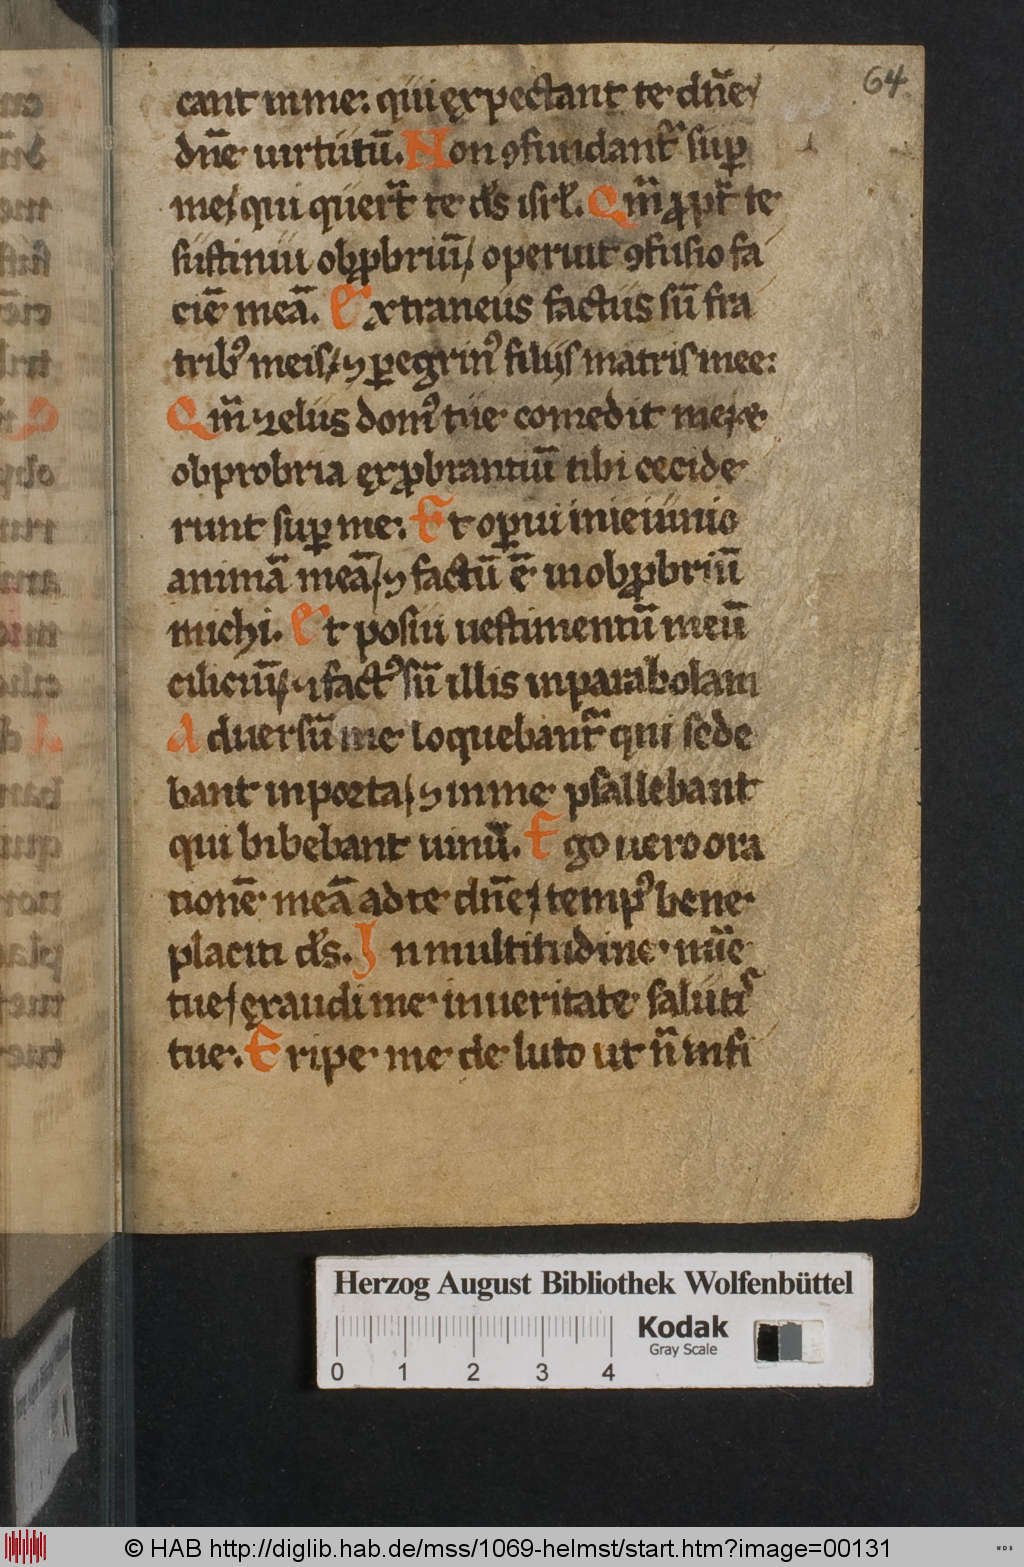 64
cant inme: qui ęxpectant te dn̄e/
dn̄e uirtutū. Non ꝯfundant᷑ suꝑ
me/ qui quert̄ te ds̄ isrl̄. Qm̄ ꝓpt̄ te
sustinui obꝓbriū/ operuit ꝯfusio fa
ciē meā. Extraneus factus sū fra
tribꝰ meis/ ⁊ ꝑegrinꝰ filiis matris mee:
Qm̄ zelus domꝰ tue comedit me/ ⁊
obprobria ęxꝓbrantiū tibi cecide
runt suꝑ me. Et oꝑui inieiunio
animā meā/ ⁊ factū ē inobꝓbriū
michi. Et posui uestimentū meū
ciliciū/ ⁊ factꝰ sū illis inparabolam
Aduersū me loquebant᷑ qui sede
bant inporta/ ⁊ inme psallebant
qui bibebant uinū. Ego uero ora
tionē meā adte dn̄e/ tempꝰ bene
placiti ds̄. In multitudine mīe
tue/ ęxaudi me inueritate saluti᷑
tue. Eripe me de luto ut n̄ infi
Herzog August Bibliothek Wolfenbüttel
Kodak
Gray Scale
0 1 2 3 4
© HAB http://diglib.hab.de/mss/1069-helmst/start.htm?image=00131